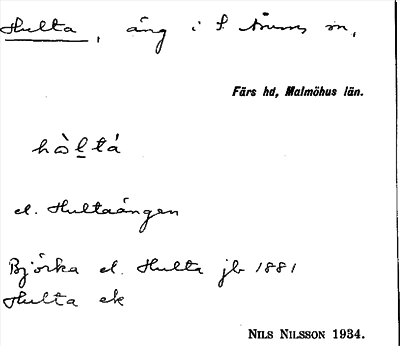 Hulta, äng i S. Åsum sn,
Färs hd, Malmöhus län.
hàltá
el. Hultaängen
Björka el. Hulta jb 1881
Hulta ek
NILS NILSSON 1934.